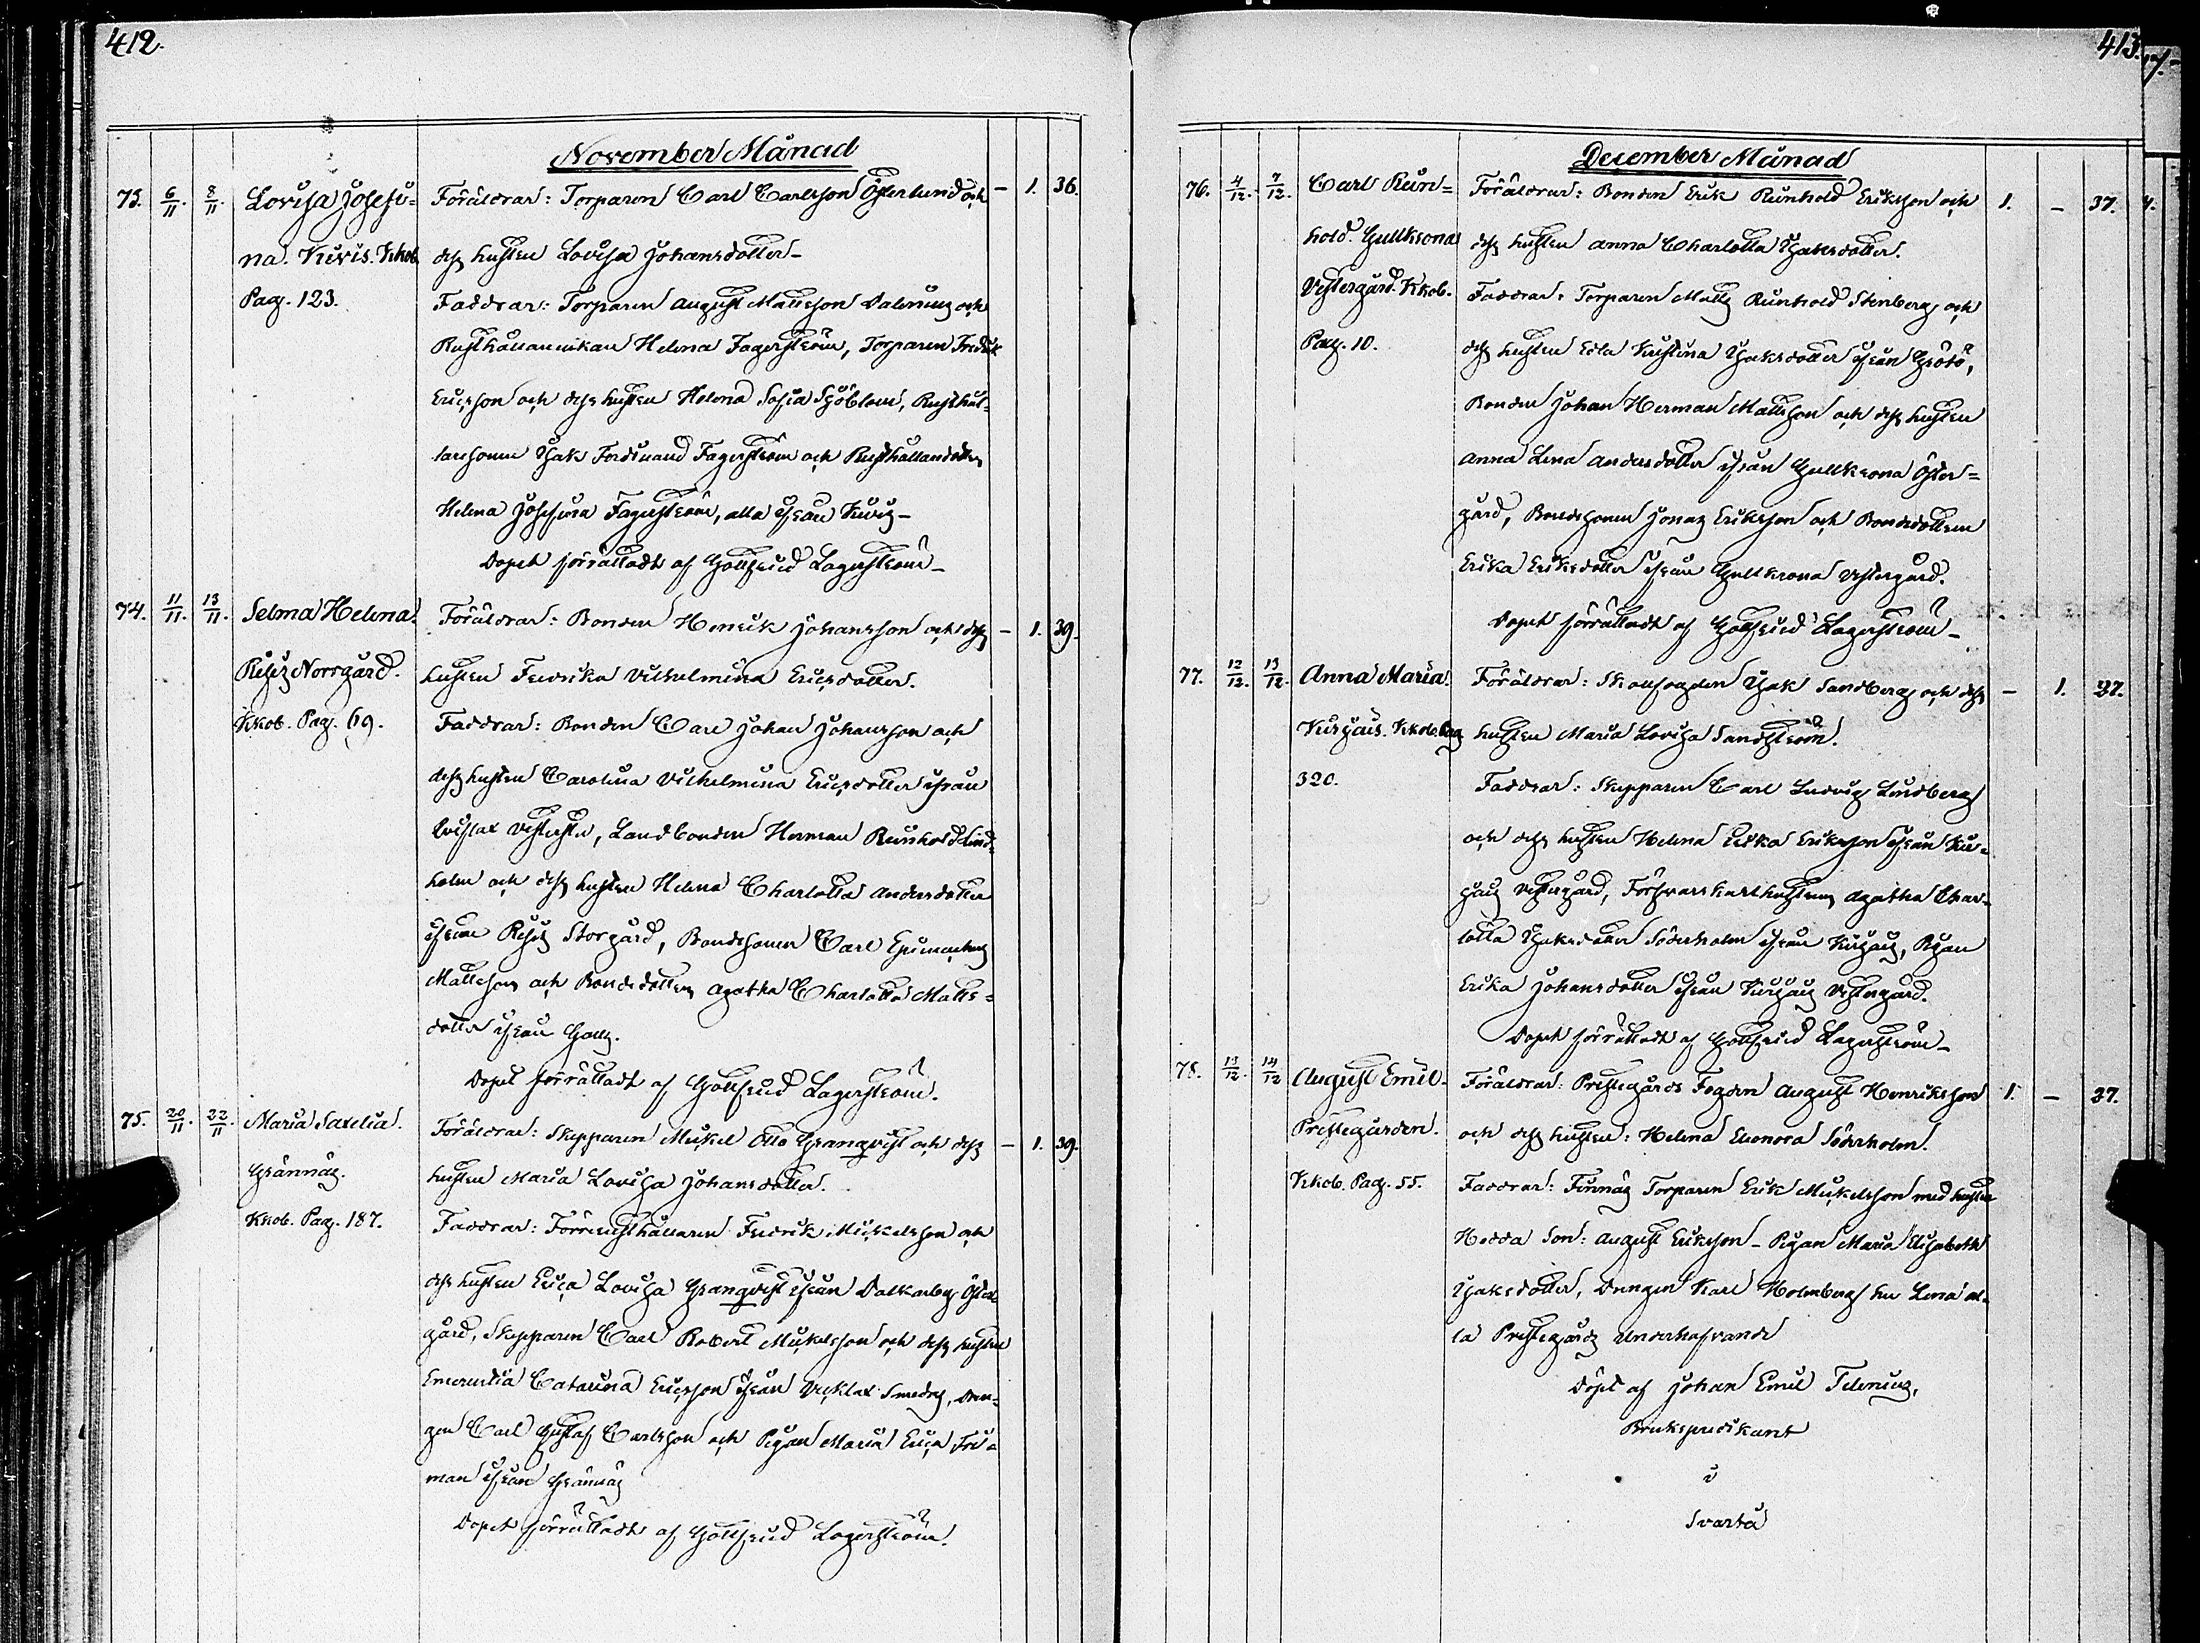 412.
November Månad
73. 6/11. 8/11. Lovisa Josefi= Föräldrar: Torparen Carl Carlsson Österlund och – 1. 36.
na. Kivis. Kkob. dess hustru Lovisa Johansdotter –
Pag. 123. Faddrar: Torparen August Mattsson Dalening och
Rusthållarinnan Helena Fagerström, Torparen Fredrik
Ericsson och dess hustru Helena Sofia Sjöblom, Rusthål-
laresonen Isak Ferdinand Fagerström och Rusthållaredottren
Helena Josefina Fagerström, alla ifrån Kivis –
Dopet förrättadt af Gottfried Lagerström –
74. 11/11. 13/11. Selma Helena. Föräldrar: Bonden Henrik Johansson och dess – 1. 39.
Risis Norrgård. hustru Fredrika Vilhelmina Ericsdotter.
Kkob. Pag. 69. Faddrar: Bonden Carl Johan Johansson och
dess hustru Carolina Vilhelmina Ericsdotter ifrån
Landbonden Herman Reinhold Lind-
holm och dess hustru Helena Charlotta Andersdotter
ifrån Risis Storgård, Bondesonen Carl
Mattsson och Bondedottren Agatha Charlotta Matts=
dotter ifrån Galts.
Dopet förrättadt af Gottfried Lagerström.
75. 20/11. 22/11. Maria Saxelia. Föräldrar: Skepparen Mickel Otto Granqvist och dess – 1. 39.
Grännäs. hustru Maria Lovisa Johansdotter.
Kkob. Pag. 187. Faddrar: Förrerusthållaren Fredrik Mickelsson och
dess hustru Erica Lovisa Granqvist ifrån Dalkarby Öster
gård, Skepparen Carl Robert Mickelsson och dess hustru
Emerentia Catarina Ericsson ifrån Vicklax Smeds, Drän-
gen Carl Gustaf Carlsson och Pigan Maria Erica Fri=
man ifrån Grännäs
Dopet förrättadt af Gottfried Lagerström.
413.
December Månad
76. 4/12. 7/12. Carl Rein= Föräldrar: Bonden Erik Reinhold Eriksson och 1. – 37.
hold. Gullkrona dess hustru Anna Charlotta Isaksdotter.
Vestergård. Kkob. Faddrar: Torparen Matts Reinhold Stenberg och
Pag. 10. dess hustru Edla Kristina Isaksdotter ifrån Grötö,
Bonden Johan Herman Mattsson och dess hustru
Anna Lena Andersdotter ifrån Gullkrona Öster=
gård, Bondesonen Jonas Eriksson och Bondedottren
Erika Eriksdotter ifrån Gullkrona Vestergård.
Dopet förrättadt af Gottfried Lagerström –
77. 12/12. 13/12. Anna Maria. Föräldrar: Skallfogden Isak Sandberg och dess – 1. 37.
Kirjais. Kkob. Pag hustru Maria Lovisa Sandström.
320. Faddrar: Skepparen Carl Ludvig Lindberg
och dess hustru Helena Erika Eriksson ifrån Kir-
jais Vestergård, Försvarskarlhustrun Agatha Char-
lotta Isaksdotter Söderholm ifrån Kirjais, Pigan
Erika Johansdotter ifrån Kirjais Vestergård.
Dopet förrättadt af Gottfried Lagerström –
78. 13/12. 14/12 August Emil. Föräldrar: Prestegårds Fogden August Henriksson 1. – 37.
Prestegården. och dess hustru: Helena Eleonora Söderholm.
Kkob. Pag. 55. Faddrar: Finnäs Torparen Erik Mickelsson med hustru
Hedda Son: August Eriksson – Pigan Maria Elisabeth
Isaksdotter, Drengen Karl Holmberg hu Lena al-
la Prestegårds underhafvande
Döpt af Johan Emil Telenius,
Brukspredikant
i
Svartå